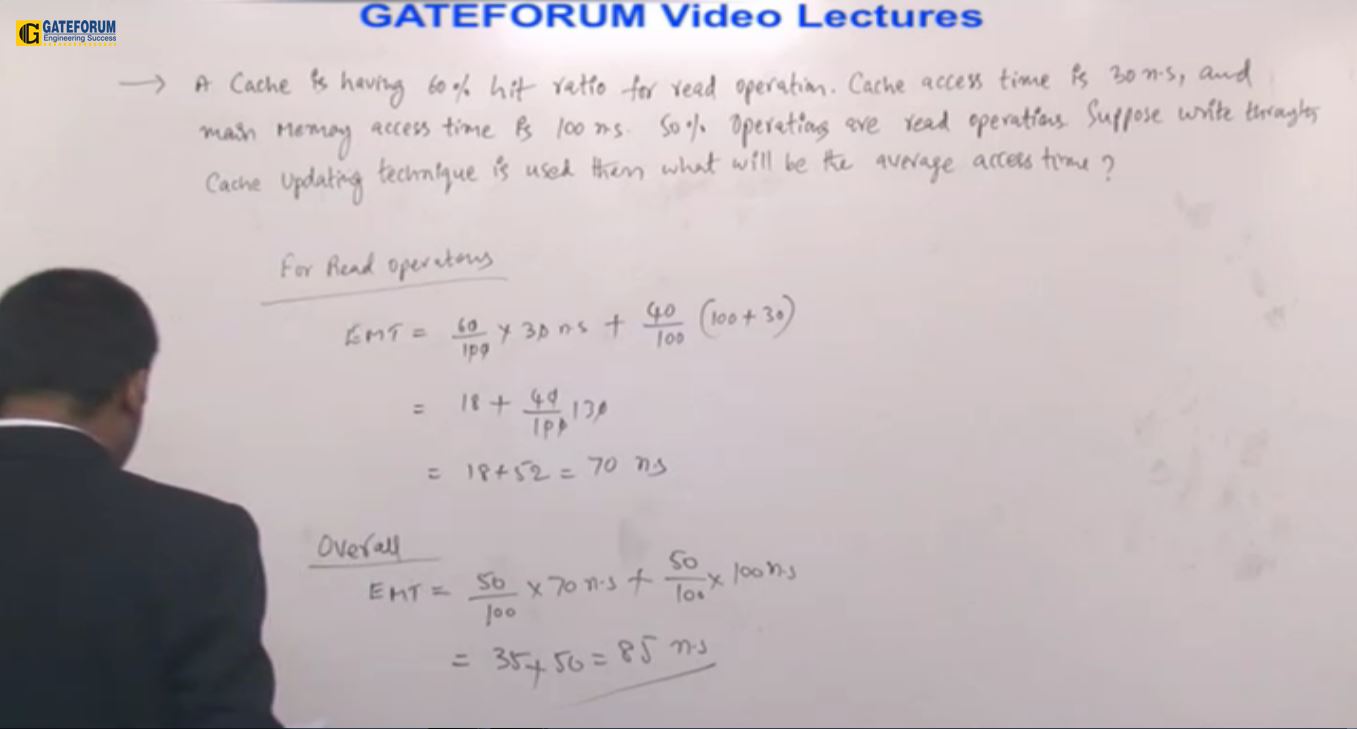 GATEFORUM Video Lectures
GATEFORUM
Engineering Success
→ A Cache is having 60% hit ratio for read operation. Cache access time is 30 n.s, and
main Memory access time is 100 ns. 50% operations are read operations. Suppose write through
Cache updating technique is used then what will be the average access time?
For Read operations
EMT = 60/100 × 30 ns + 40/100 (100+30)
= 18 + 40/100 130
= 18+52 = 70 ns
Overall
EMT = 50/100 × 70 n.s + 50/100 × 100 n.s
= 35+50 = 85 n.s